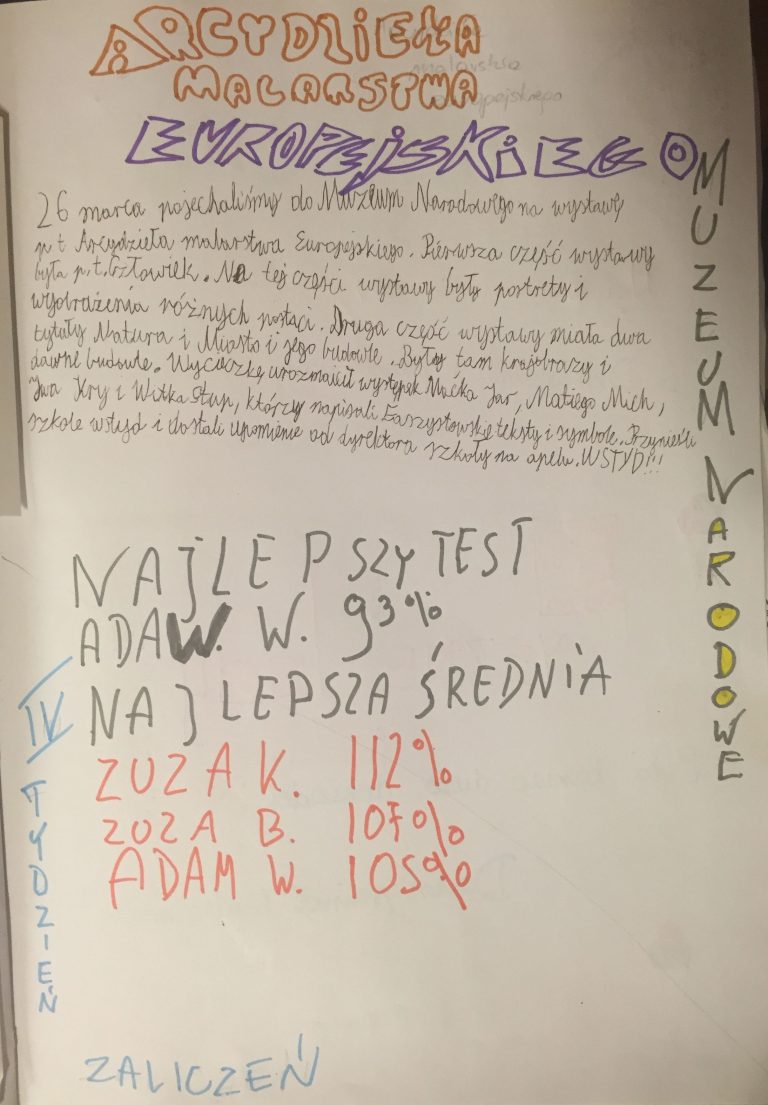 ARCYDZIEŁA
MALARSTWA
EUROPEJSKIEGO
26 marca pojechaliśmy do Muzeum Narodowego na wystawę
p.t Arcydzieła malarstwa Europejskiego. Pierwsza część wystawy
była p.t. Człowiek. Na tej części wystawy były portrety i
wyobrażenia różnych postaci. Druga część wystawy miała dwa
tytuły Natura i Miasto i jego budowle. Były tam krajobrazy i
dawne budowle. Wycieczkę urozmaicił występek Maćka Jar, Matiego Mich,
Iwa Kry i Witka Stup, którzy napisali Faszystowskie teksty i symbole. Przynieśli
szkole wstyd i dostali upomnienie od dyrektora szkoły na apelu. WSTYD!!!
MUZEUM NARODOWE
NAJLEPSZY TEST
ADAM W. 93%
NAJLEPSZA ŚREDNIA
ZUZA K. 112%
ZUZA B. 107%
ADAM W. 105%
IV TYDZIEŃ
ZALICZEŃ